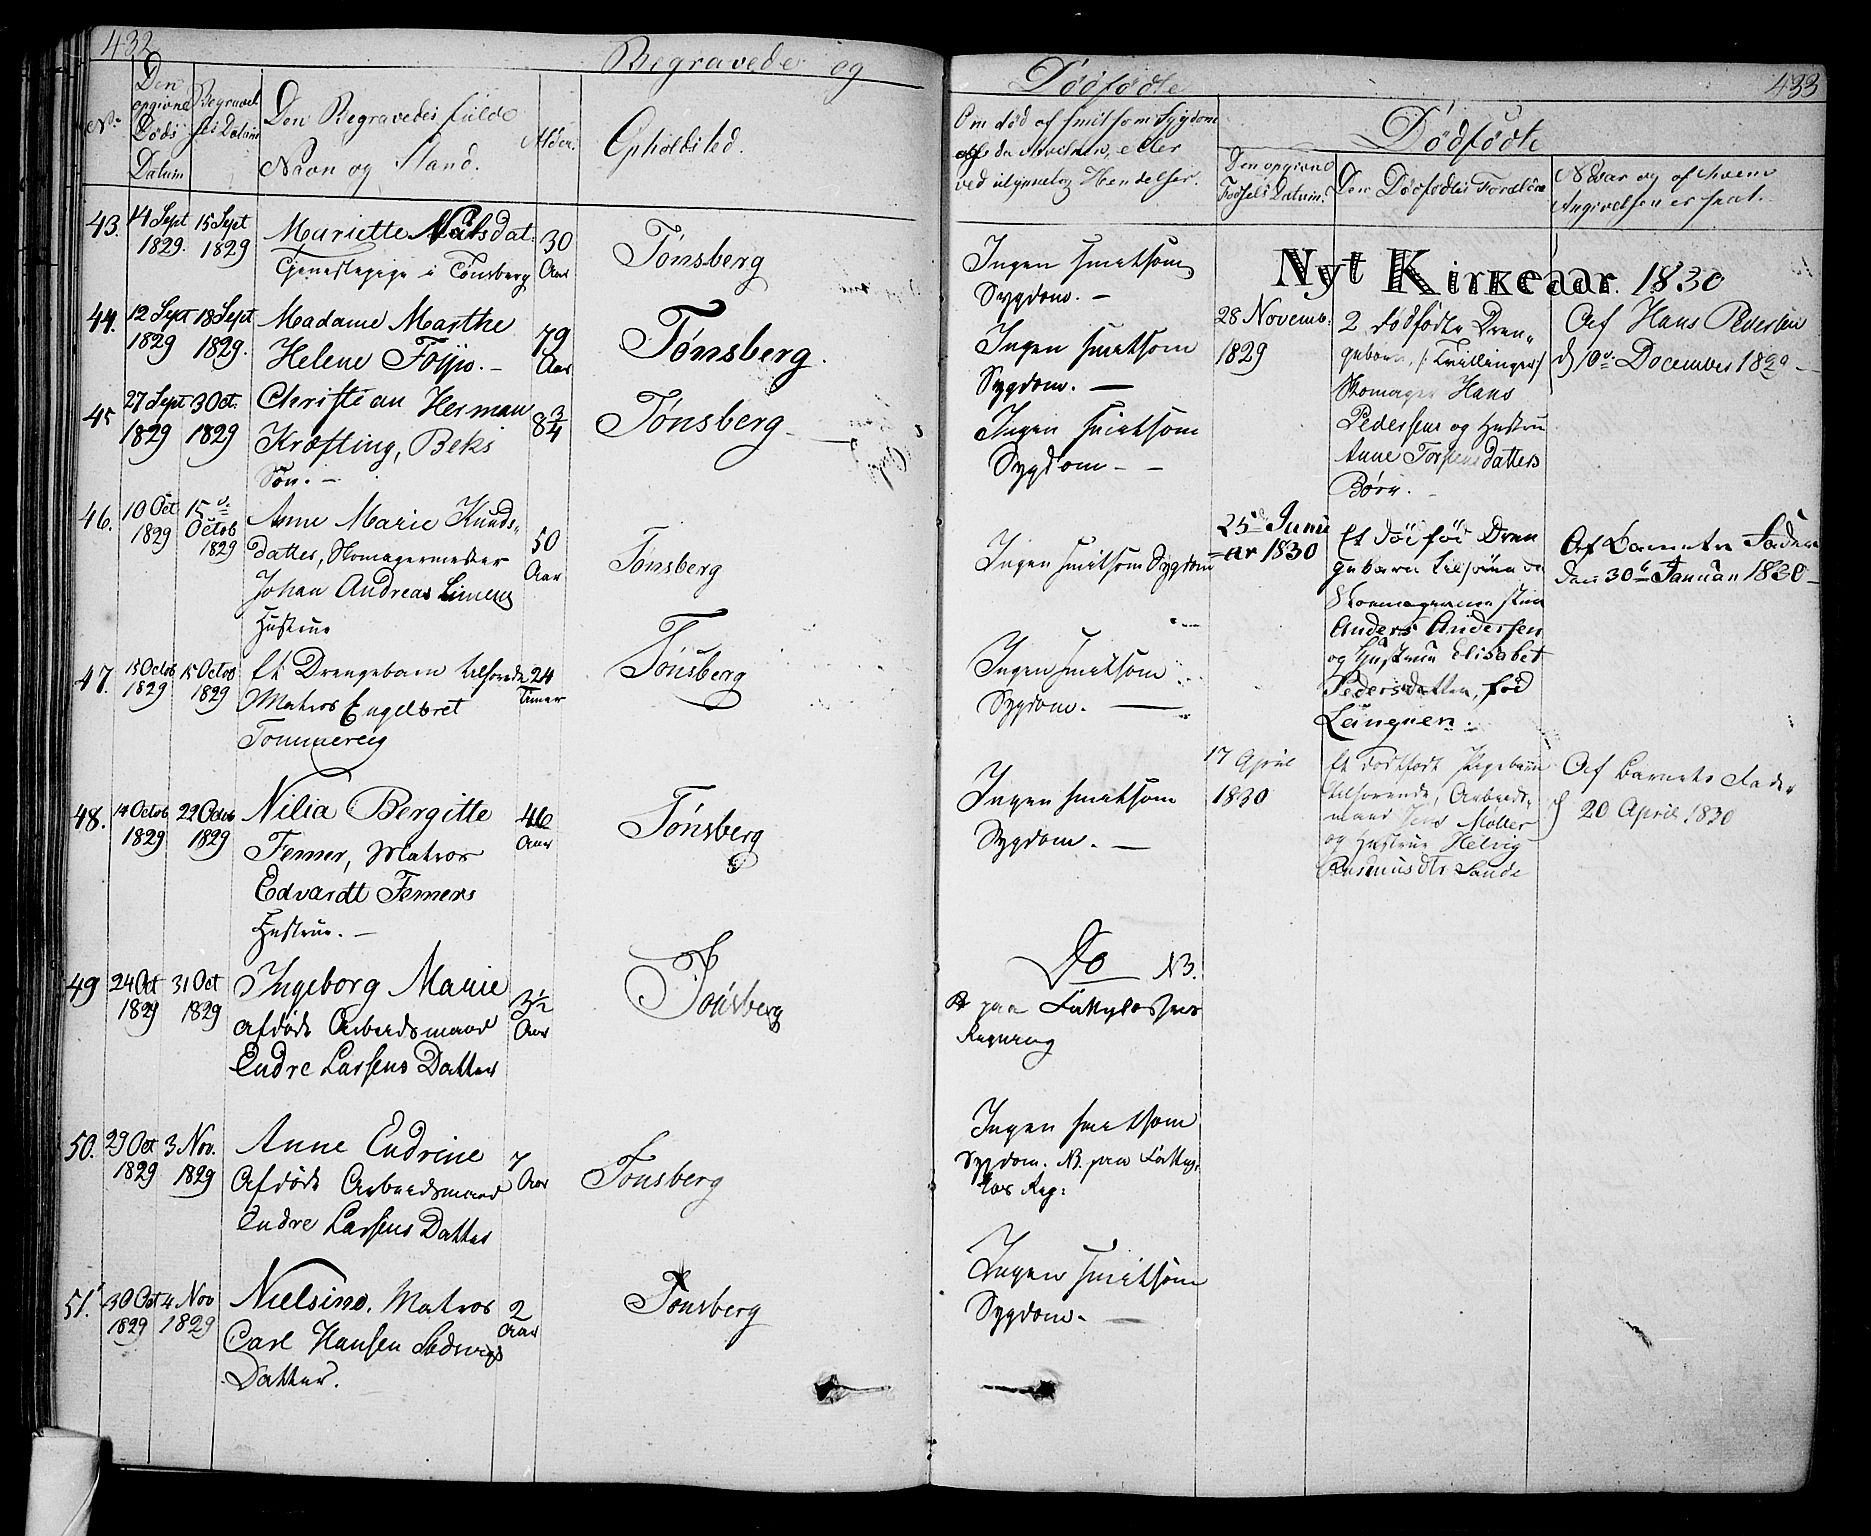 432
Begravede og
No
Den opgivne Døds Datum
Begravelses Datum
Den Begravedes fulde
Navn og Stand.
Alder.
Opholdsted.
43.
14 Sept
1829.
15 Sept
1829
Mariette Natsdat.
Tjenestepige i Tønsberg
30
Aar
Tønsberg
44.
12 Sept
1829
18 Sept
1829.
Madame Marthe
Helene
79
Aar
Tønsberg.
45
27 Sept
1829
3 Oct.
1829
Christian Herman
Kræfting, Beks
Søn. —
8 3/4
Tønsberg
46.
10 Oct
1829
15
Octob
1829
Anne Marie Knuds-
datter, Skomagermester
Johan Andreas
Hustrue
50
Aar
Tønsberg
47.
15 Octob
1829
15 Octob
1829
Et Drengebarn tilhørende
Matros Engelbret
Tommereig
24
Timer
Tønsberg
48.
14 Octob
1829
22 Octob
1829
Nilia Bergitte
Femer, Matros
Edvardt Femers
Hustrue. —
46
Aar
Tønsberg
49
24 Oct
1829
31 Oct
1829
Ingeborg Marie
afdøde Arbeidsmand
Endre Larsens Datter
3 1/2
Aar
Tønsberg
50.
29 Oct
1829
3 Nov.
1829
Anne Endrine
Afdøde Arbeidsmand
Endre Larsens Datter
7
Aar
Tonsberg
51.
30 Oct
1829
4 Nov
1829
Nielsine. Matros
Carl Hansen
Datter.
2
Aar
Tønsberg
Dødfødte
433
Om død af smitsom Sygdom
eller
ved ulykkelig Hendelser.
Dødfødte
Den opgivne
Fødsels Datum.
Den Dødfødtes Forældre
Naar og af hvem
Angivelsen er skeet.
Nyt Kirkeaar. 1830
Ingen smitsom
Sygdom. —
Ingen smitsom
Sygdom. —
Ingen smitsom
Sygdom — —
Ingen smitsom Sygdom
Ingen smitsom
Sygdom. —
Ingen smitsom
Sygdom. —
Do NB.
paa Fattigkassens
Regning
Ingen smitsom
Sygdom. NB. paa Fattig-
kas Reg:
Ingen smitsom
Sygdom. —
28 Novemb.
1829
2 dødfødte Dren-
gebørn, /: Tvillinger/
Skomager Hans
Pedersens og Hustru
Anne datters
Børn.
Af Hans Pedersen
d December 1829 —
25 Janu
ar 1830
Et dødfød Dren
gebarn tilhørende
Skomagermesteren
Anders Andersen
og Hustrue Elisabet
Pedersdatter, fød
Af Barnets Fader
den 30 Januari 1830 —
17 April
1830
Et dødfødt Pigebarn
tilhørende, Arbeids-
mand Jens Møller
og Hustrue Helvig
Rasmusdtr Sande
Af Barnets Fader
d 20 April 1830